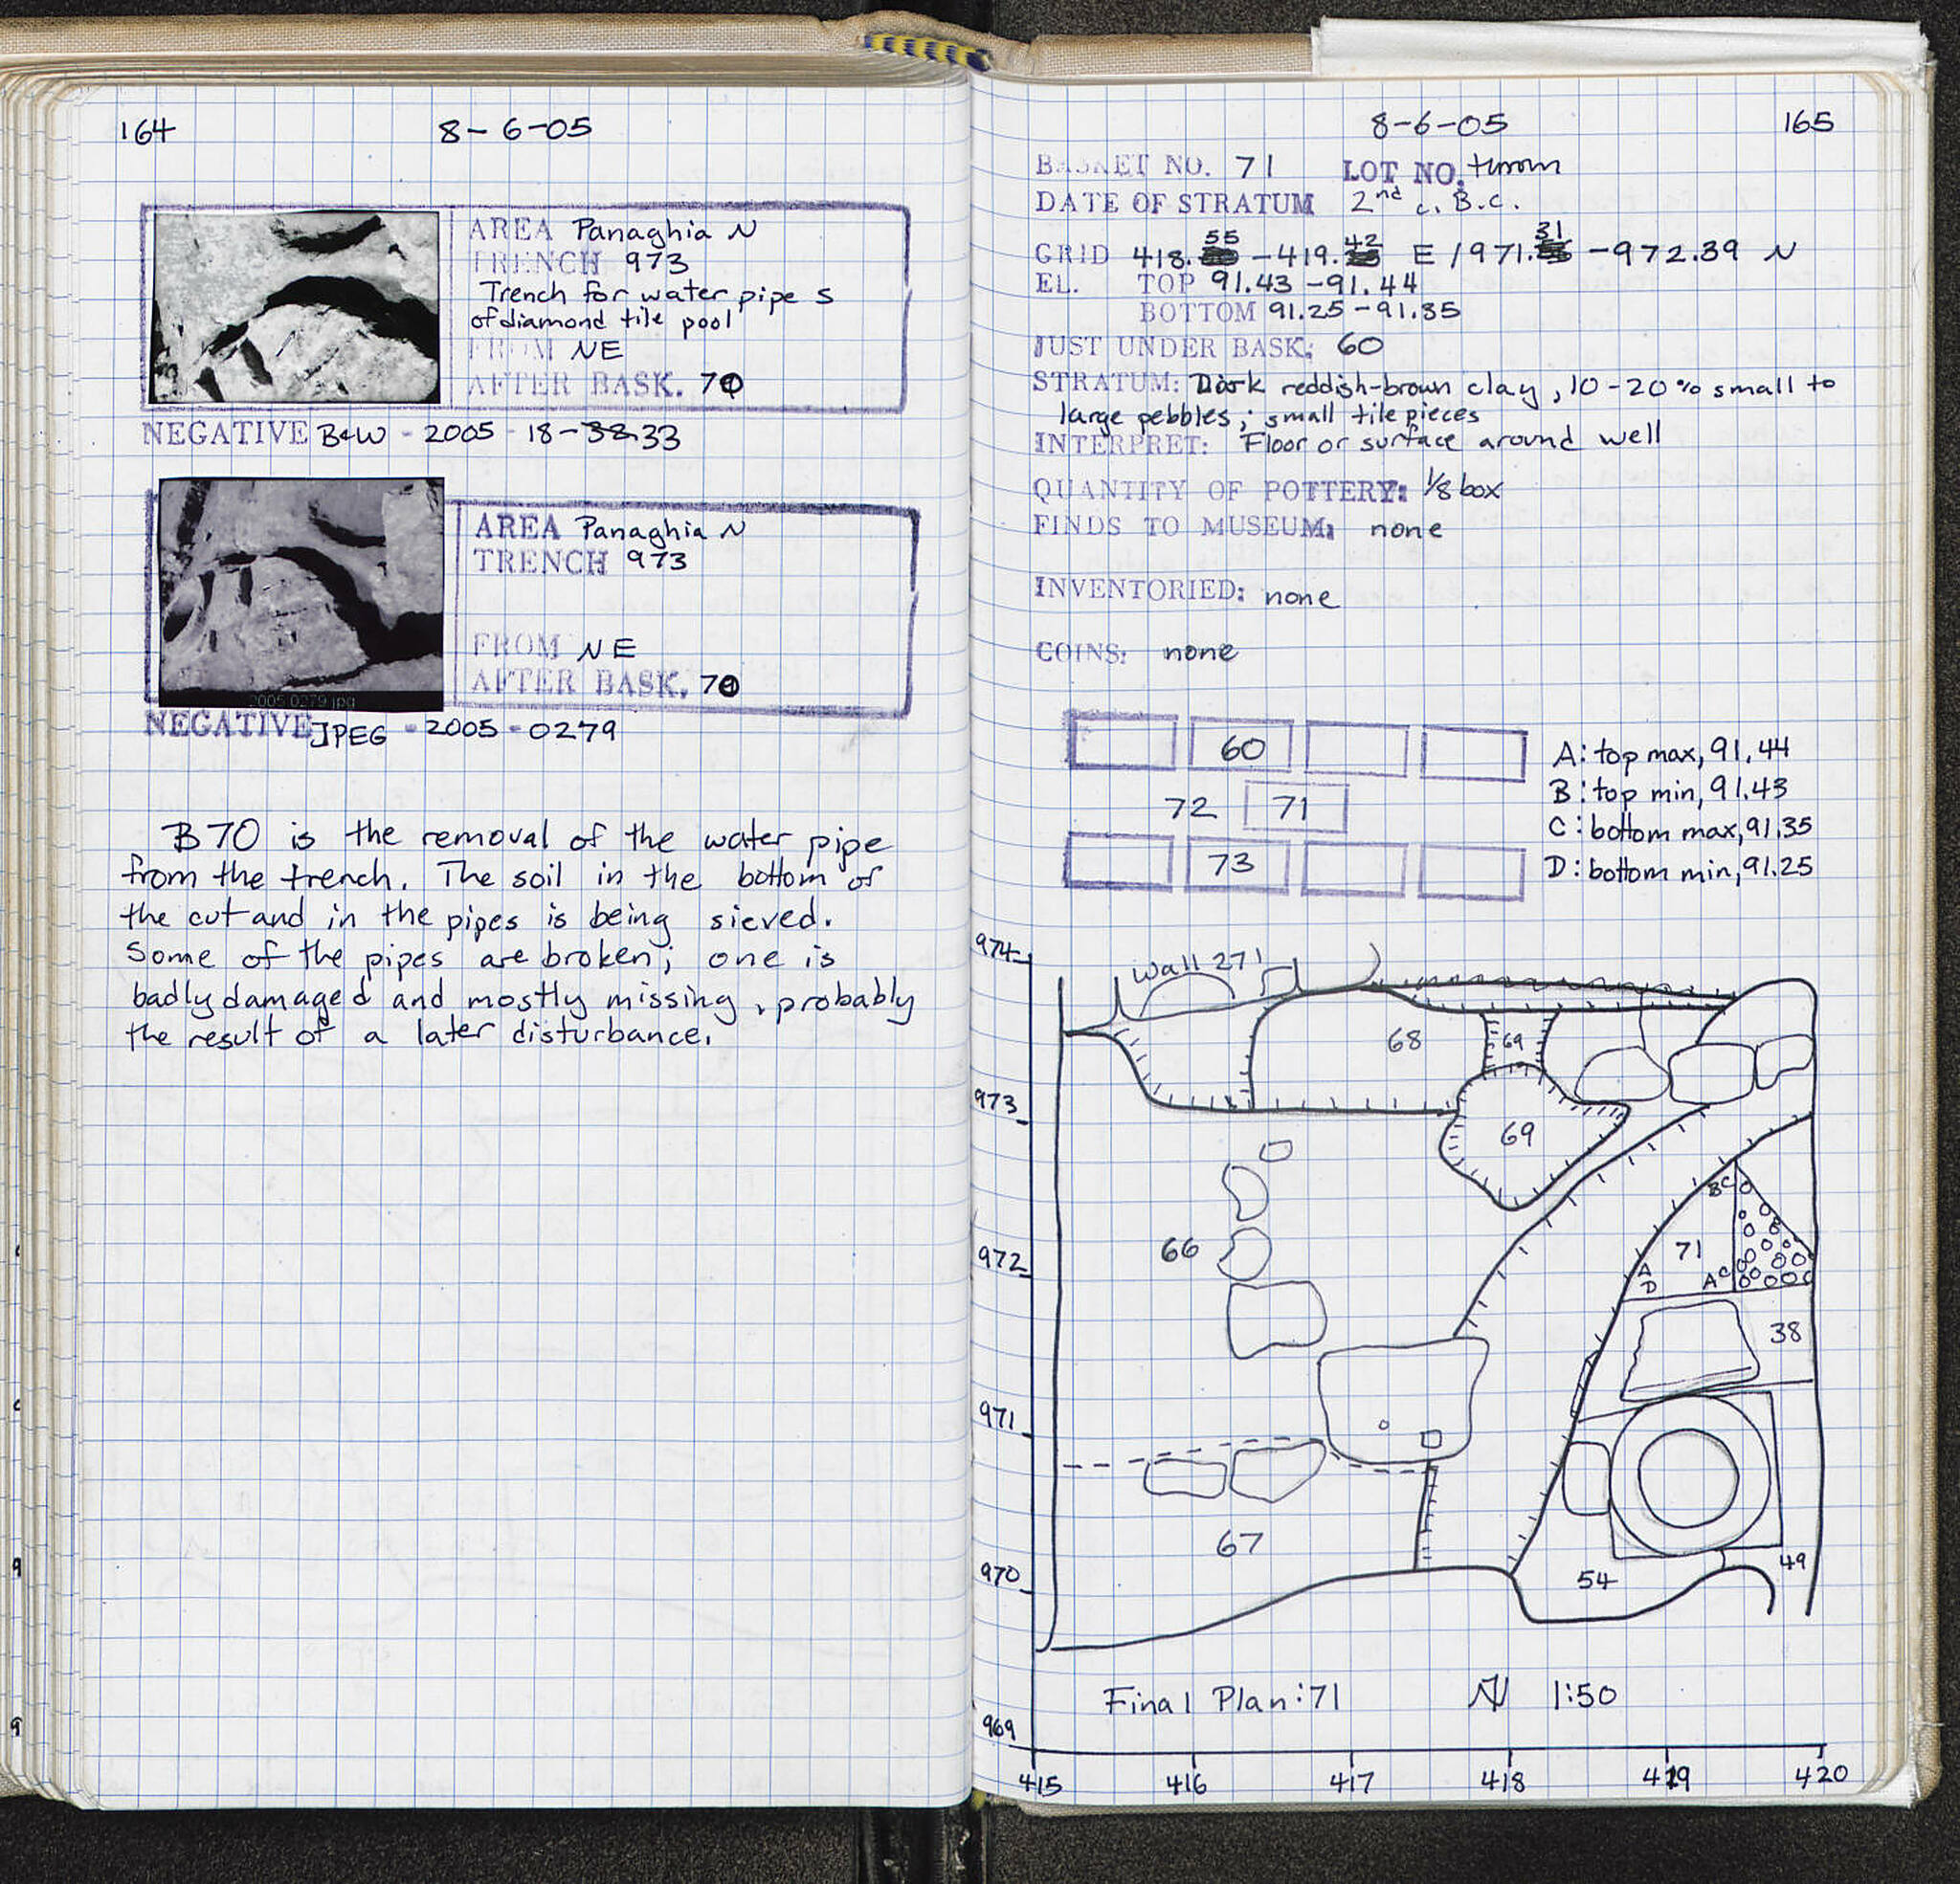 164
8-6-05
AREA Panaghia N
TRENCH 973
Trench for water pipes
of diamond tile pool
FROM NE
AFTER BASK. 70
NEGATIVE B&W - 2005 - 18-38 33
AREA Panaghia N
TRENCH 973
FROM NE
AFTER BASK. 70
2005 0279.jpg
NEGATIVE JPEG - 2005 - 0279
B70 is the removal of the water pipe
from the trench. The soil in the bottom of
the cut and in the pipes is being sieved.
Some of the pipes are broken; one is
badly damaged and mostly missing, probably
the result of a later disturbance.
8-6-05
165
BASKET NO. 71 LOT NO.
DATE OF STRATUM 2nd c. B.C.
GRID 418.55 -419.42 E / 971.31 -972.39 N
EL. TOP 91.43 -91.44
BOTTOM 91.25 -91.35
JUST UNDER BASK: 60
STRATUM: Dark reddish-brown clay, 10-20% small to
large pebbles; small tile pieces
INTERPRET: Floor or surface around well
QUANTITY OF POTTERY: 1/8 box
FINDS TO MUSEUM: none
INVENTORIED: none
COINS: none
60
72 71
73
A: top max, 91.44
B: top min, 91.43
C: bottom max, 91.35
D: bottom min, 91.25
974
Wall 271
68
69
973
69
B C
66
972
71
A
D
A C
38
971
67
970
54
49
Final Plan: 71 N 1:50
969
415 416 417 418 419 420